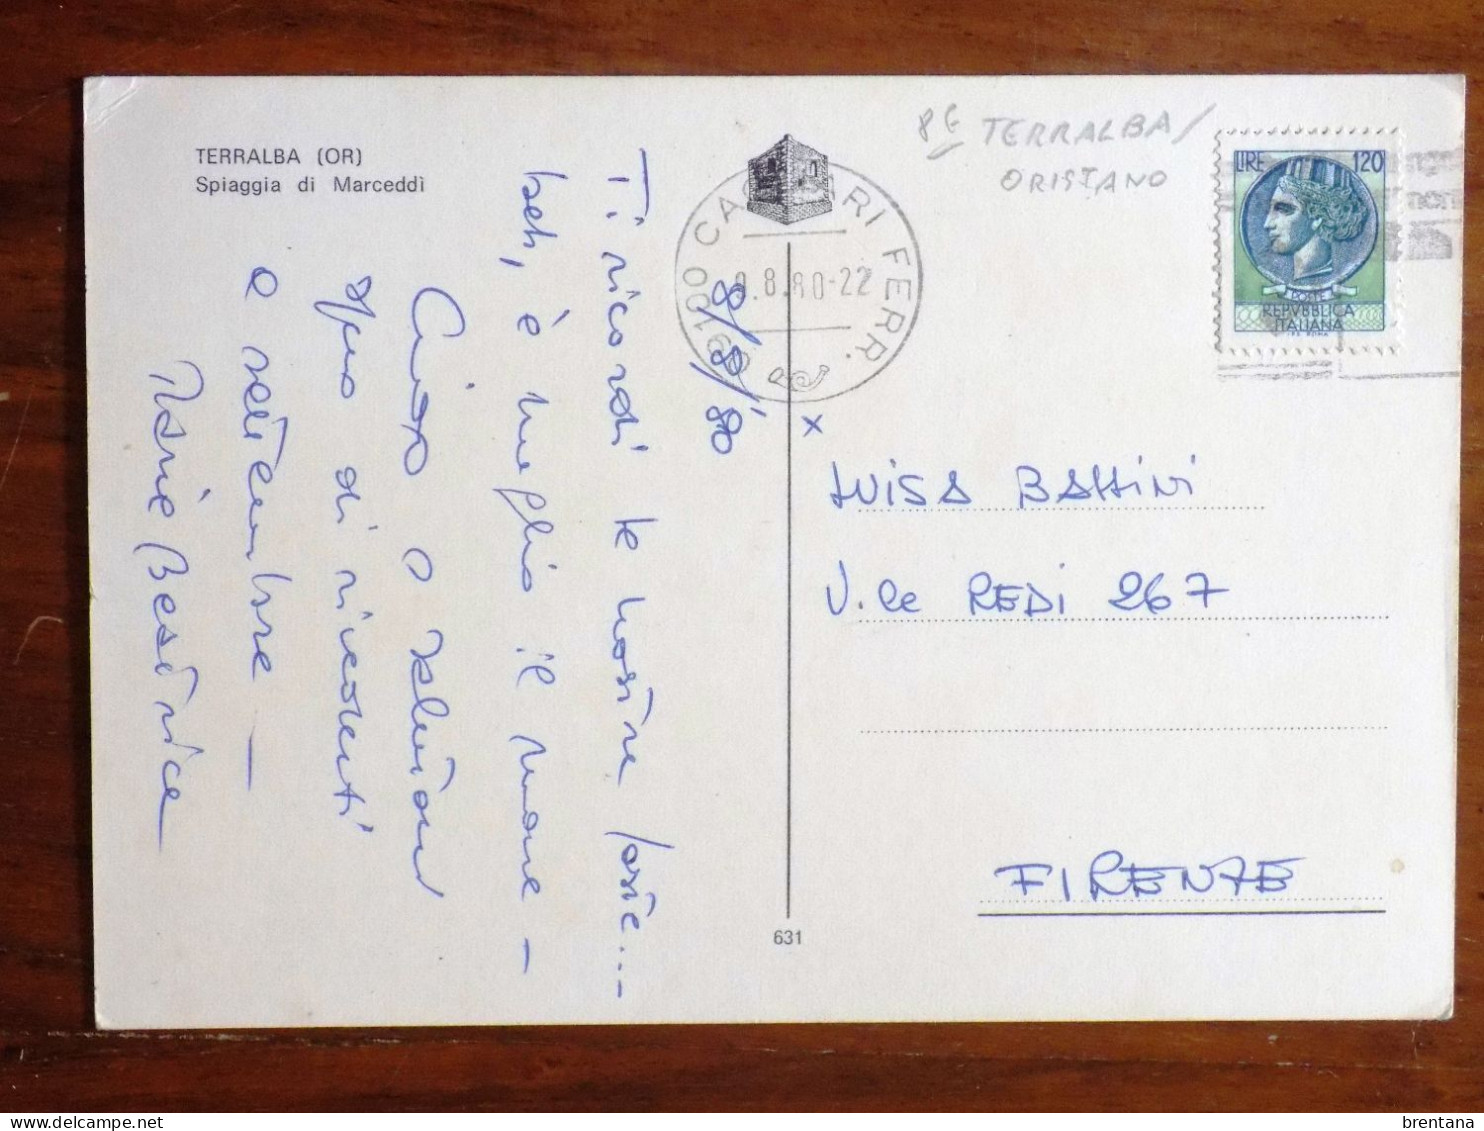 TERRALBA (OR)
Spiaggia di Marceddì
8€ TERRALBA/
ORISTANO
LIRE 120
POSTE
REPVBBLICA
ITALIANA
09100 CAGLIARI FERR.
8.80-22
8/8/'80
Ti ricordi le nostre
beh, è meglio il mare –
Ciao a
di rivederti
e settembre –
Beatrice
x
LUISA BATTINI
V.le REDI 267
FIRENZE
631
brentana